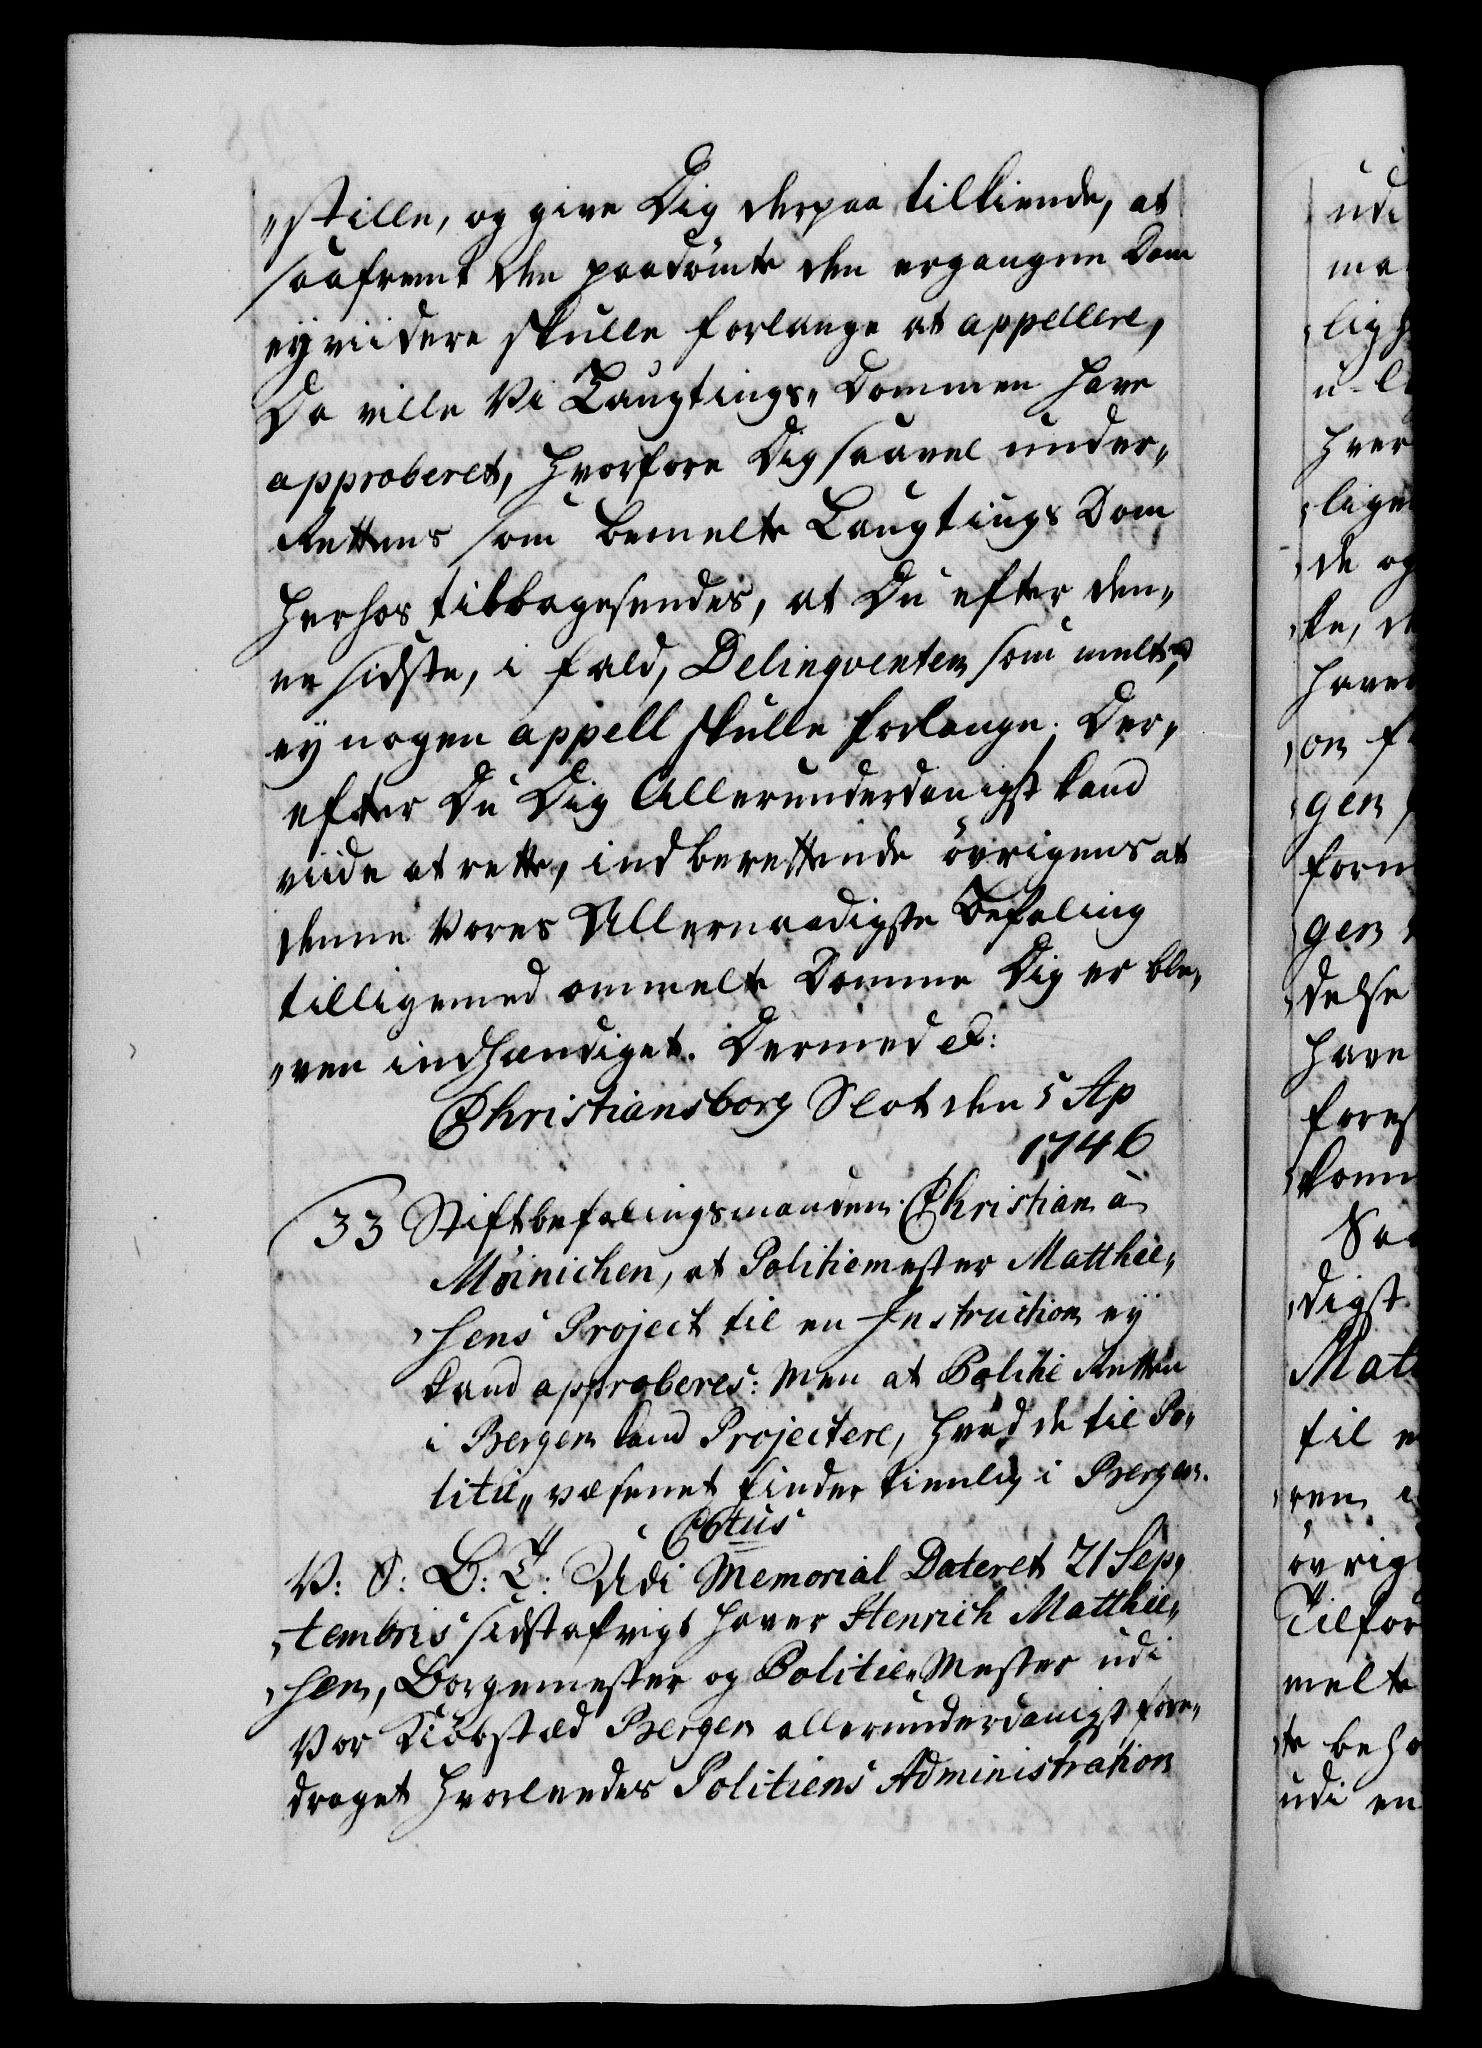 "stille, og give Dig derpaa tilkiende, at
saafremt den paadömte den ergangne Dom
eÿ viidere skulle forlange at appellere,
Da ville Vi Laugtings„ Dommen have
approberet, hvorfore Dig saavel under„
Rettens som bemelte Laugtings Dom
herhos tilbagesendes, at Du efter den„
ne sidste, i fald, Delinqventen som meldt,
eÿ nogen appell skulle forlange. Der„
efter Du Dig Allerunderdanigst kand
viide at rette, indberettende övrigens at
denne Vores Allernaadigste Befaling
tilligemed ommelte Domme Dig er ble„
„ven indhændiget. Dermed &:
Christiansborg Slot den 5 Ap
1746
33 Stiftbefalingsmanden Christian à
Möinichen, at Politiemester Matthie„
„sens Project til en Instruction eÿ
kand approberes: Men at Politie Retten
i Bergen kand Projectere, hvad de til Po„
litie„ væsenet finder tienlig i Bergen.
C6tus
V: S: B: T: Udi Memorial Dateret 21 Sep„
„tembris sidstafvigt haver Henrich Matthie„
„sen, Borgemester og Politie„Mester udi
Vor Kiöbstæd Bergen allerunderdanigst fore„
draget hvorleedes Politiens Administration
udi
ma
lig
hver
lige
de og
ke, d
have
on f
gen
form
gen
delse
have
fores
komm
Saa
digst
Mat
til e
ren i
övrig
Tilfor
melte
te beho
udi en